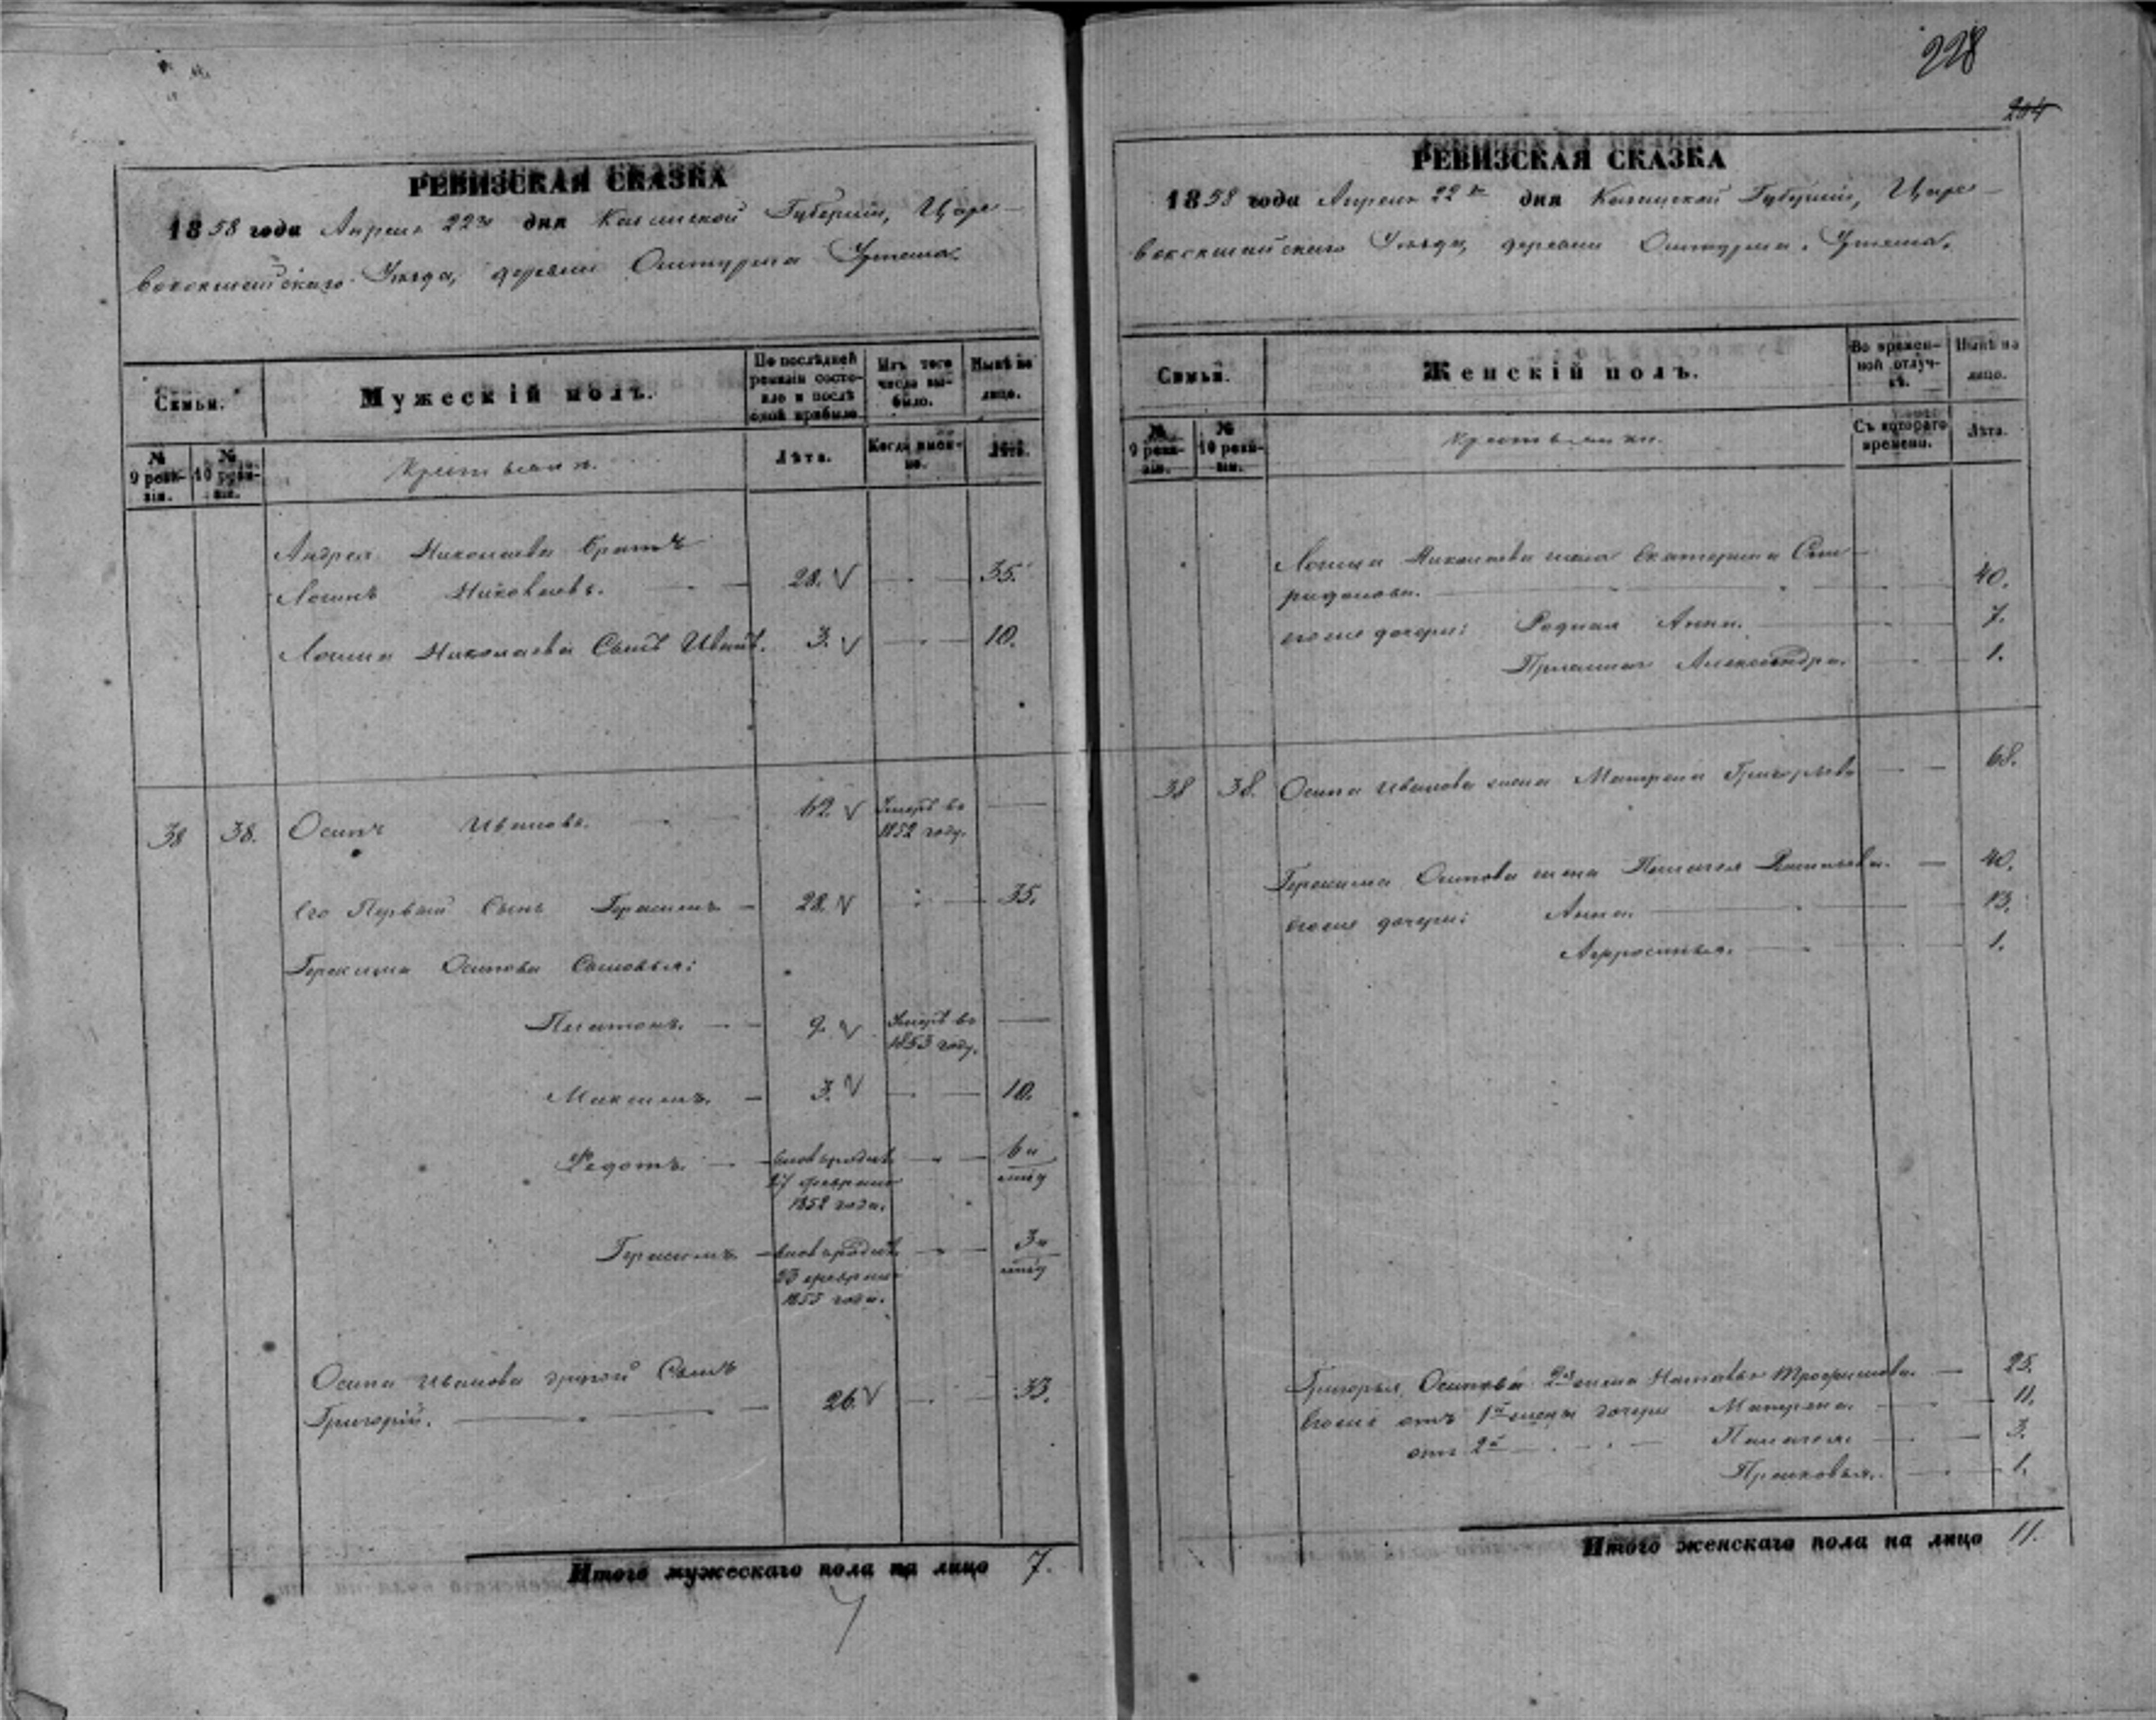 228
204
РЕВИЗСКАЯ СКАЗКА
1858 года Апреля 22го дня Казанской Губернии, Царе-
вококшайскаго Уѣзда, деревни Ошнурга
Семьи.
Мужескій полъ.
По послѣдней ревизіи состояло и послѣ оной прибыло.
Изъ того числа выбыло.
Нынѣ на лицо.
№ 9 ревизіи.
№ 10 ревизіи.
Крестьяне.
Лѣта.
Когда именно.
Лѣта.
Андрея Николаева братъ
Логинъ Николаевъ. 28. 35.
Логина Николаева Сынъ Иванъ. 3. 10.
38 38. Осипъ Ивановъ. 62. Умеръ въ 1852 году.
Его Первый Сынъ Герасимъ 28. 35.
Герасима Осипова Сыновья:
Платонъ. 9. Умеръ въ 1853 году.
Максимъ. 3. 10.
Ѳедотъ. 27 февраля 1852 года. 6
Герасимъ 23 февраля 1855 года. 3
Осипа Иванова другой Сынъ
Григорій. 26. 33.
Итого мужескаго пола на лицо 7.
РЕВИЗСКАЯ СКАЗКА
1858 года Апреля 22го дня Казанской Губерніи, Царе-
вококшайскаго Уѣзда, деревни Ошнурга
Семьи.
Женскій полъ.
Во временной отлучкѣ.
Нынѣ на лицо.
№ 9 ревизіи.
№ 10 ревизіи.
Крестьянки.
Съ котораго времени.
Лѣта.
Логина Николаева жена Екатерина Спи-
ридонова. 40.
его же дочери: Родная Анна. 7.
Александра. 1.
38 38. Осипа Иванова жена Матрена Григорьева 68.
Герасима Осипова жена Пелагея Васильева. 40.
его же дочери: Анна. 13.
Афросинья. 1.
Григорья Осипова 2я жена Наталья Трофимова. 25.
Его же отъ 1й жены дочери Матрена. 11.
отъ 2й Пелагея 3.
Прасковья. 1.
Итого женскаго пола на лицо 11.